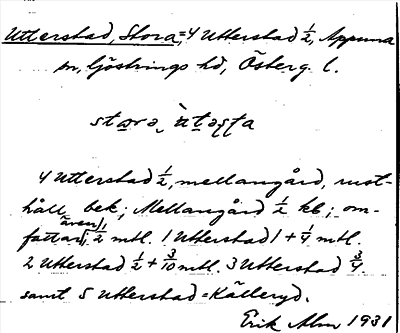 Utterstad, Stora, = 4 Utterstad ½, Appuna
sn, Göstrings hd, Österg. l.
4 Utterstad ½, mellangård, rust-
håll bek.; Mellangård ½ kb; om-
fattar även 1/2 mtl. 1 Utterstad 1 + ¼ mtl.
2 Utterstad ½ + 3/10 mtl. 3 Utterstad ¾
samt 5 Utterstad = Källeryd.
Erik Alm 1931